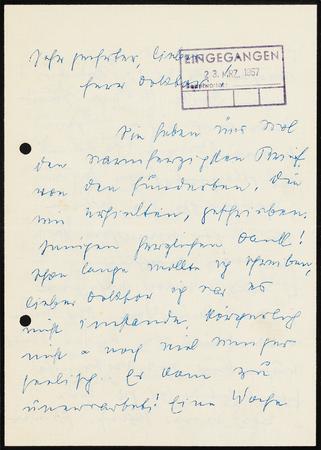 Sehr geehrter, lieber
Herr Doktor!
EINGEGANGEN
23. MRZ. 1957
Sie haben uns wol
den warmherzigsten Brief,
von den Hunderten, die
wir erhielten, geschrieben.
Innigen herzlichen Dank!
Schon lange wollte ich schreiben,
lieber Doktor ich war es
nicht imstande, körperlich
nicht u noch viel weniger
seelisch. Es kam zu
unerwartet! Eine Woche